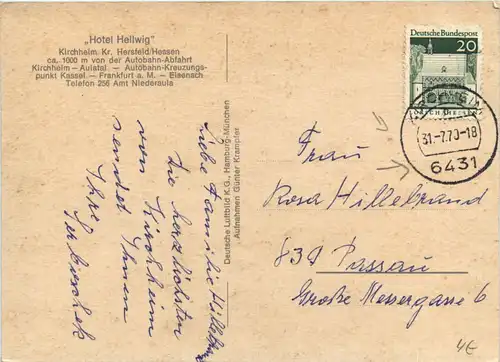 „Hotel Hellwig"
Kirchheim Kr. Hersfeld/Hessen
ca. 1000 m von der Autobahn-Abfahrt
Kirchheim — Aulatal — Autobahn-Kreuzungs-
punkt Kassel — Frankfurt a. M. — Eisenach
Telefon 256 Amt Niederaula
Liebe Familie
Die herzlichsten
von Kirchheim
sendet Ihnen
Ihre
Deutsche Luftbild K.G., Hamburg-München
Aufnahmen Günter Krampfer
Deutsche Bundespost
20
31.-7.70-18
6431
Frau
Rosa Hillebrand
839 Passau
Große Messergasse 6
4€